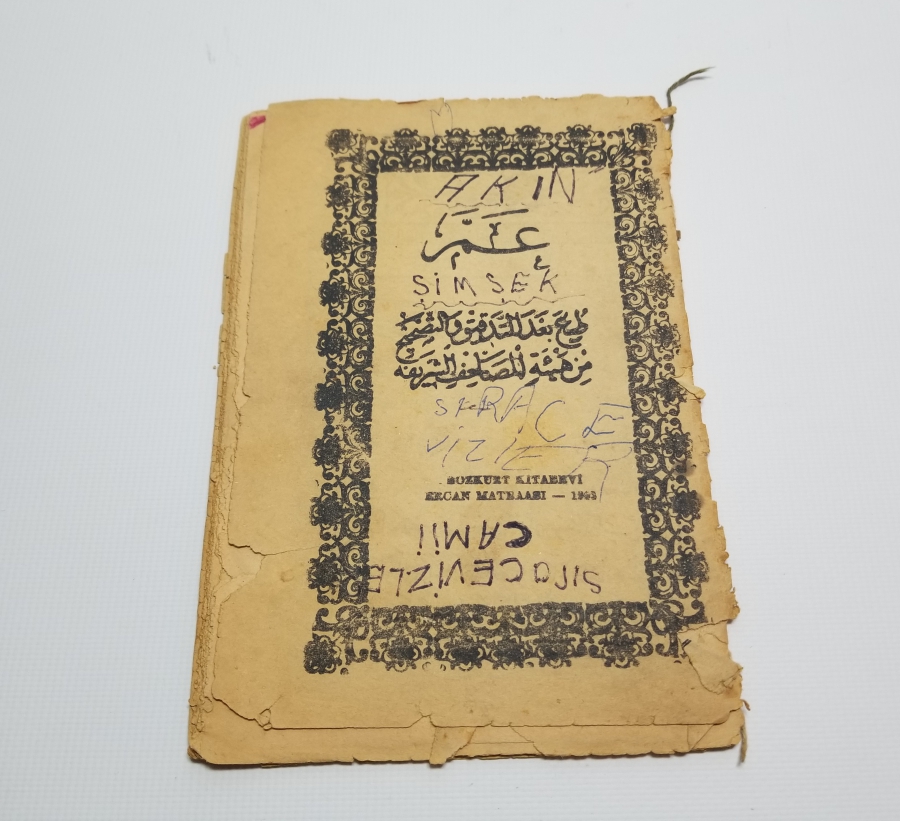 AKIN
عَمَّ
ŞİMŞEK
طبع بعد التدقيق والتصحيح
من هيئة المصاحف الشريفة
VİZLER
BOZKURT KİTABEVİ
ERCAN MATBAASI — 1963
CAMİİ
SıraCEVİZLE